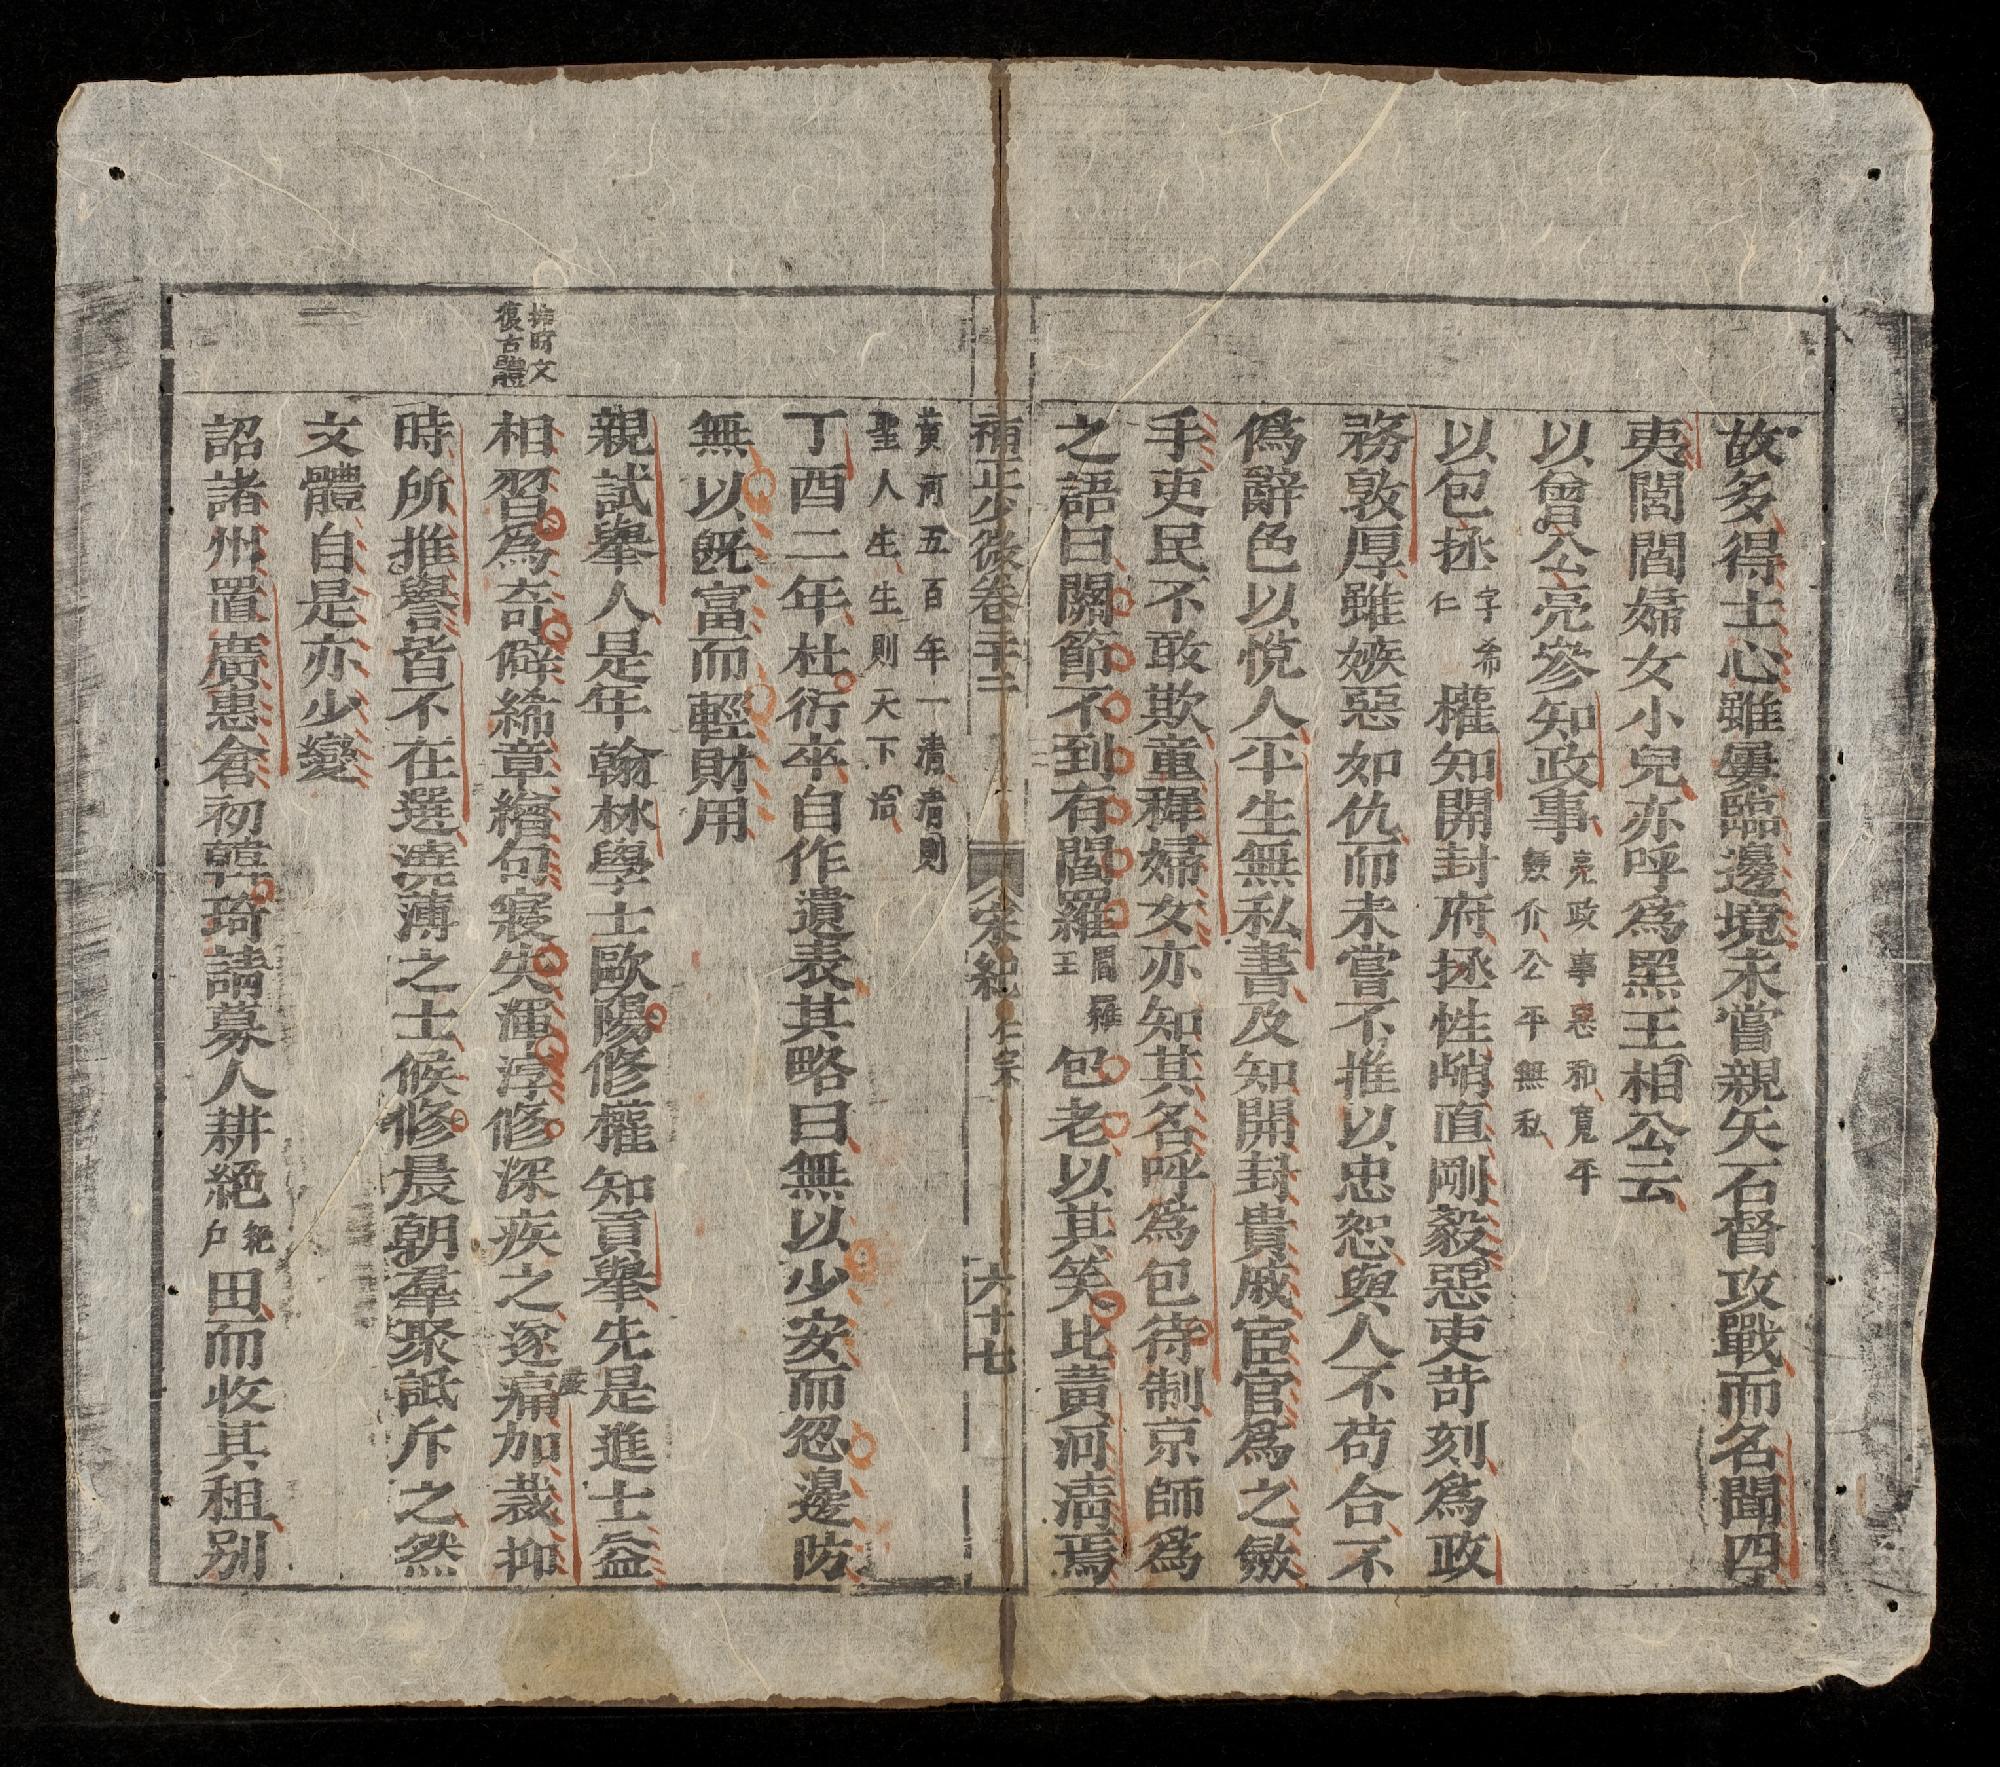 故多得士心雖屢臨邊境未嘗親矢石督攻戰而名聞四
夷閭閻婦女小兒亦呼爲黑王相公云
以曾公亮參知政事亮政事惡和寬平憨介公平無私
以包拯字希仁權知開封府拯性峭直剛毅惡吏苛刻爲政
務敦厚雖嫉惡如仇而未嘗不推以忠恕與人不苟合不
僞辭色以悅人平生無私書及知開封貴戚宦官爲之斂
手吏民不敢欺童穉婦女亦知其名呼爲包待制京師爲
之語曰關節不到有閻羅閻羅王包老以其笑比黃河淸焉
補正少微卷二十二 宋紀 仁宗 六十七
黃河五百年一淸淸則
聖人生生則天下治
丁酉二年杜衍卒自作遺表其略曰無以少安而忽邊防
無以旣富而輕財用
親試舉人是年翰林學士歐陽修權知貢舉先是進士益
文
復古體
相習爲奇僻絺章繪句寖失渾淳修深疾之遂痛加裁抑
時所推譽皆不在選澆薄之士候修晨朝羣聚詆斥之然
文體自是亦少變
詔諸州置廣惠倉初韓琦請募人耕絕絕戶田而收其租別